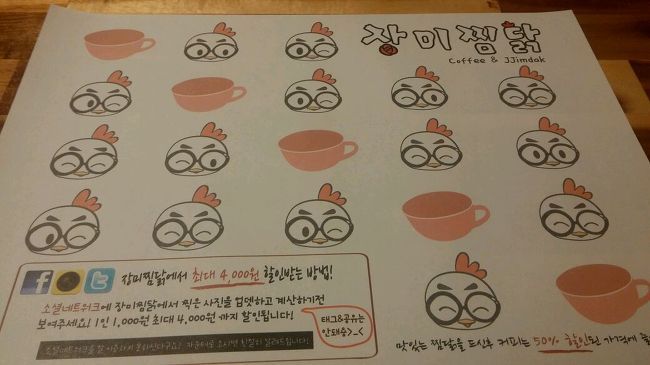 장미찜닭
Coffee & JJimdak
장미찜닭에서 최대 4,000원 할인받는 방법!
소셜네트워크에 장미찜닭에서 찍은 사진을 업뎃하고 계산하기전
보여주세요! 1인 1,000원 최대 4,000원 까지 할인됩니다!
태그&공유는
안돼용>_<
맛있는 찜닭을 드신후 커피는 50% 할인된 가격에 즐